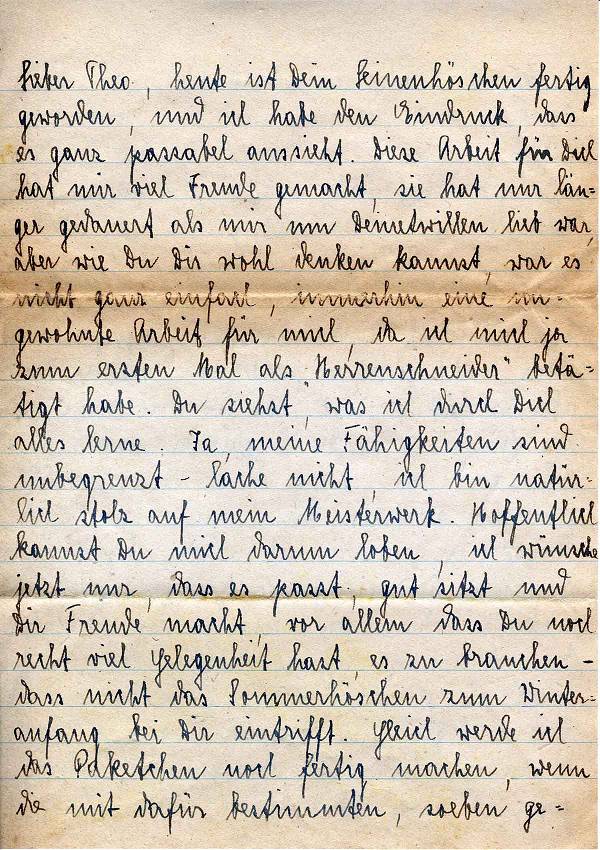 Lieber Theo, heute ist Dein Leinenhöschen fertig
geworden, und ich habe den Eindruck, dass
es ganz passabel aussieht. Diese Arbeit für Dich
hat mir viel Freude gemacht, sie hat nur län-
ger gedauert als mir um Deinetwillen lieb war,
aber wie Du Dir wohl denken kannst, war es
nicht ganz einfach, immerhin eine un-
gewohnte Arbeit für mich, da ich mich ja
zum ersten Mal als „Herrenschneider" betä-
tigt habe. Du siehst, was ich durch Dich
alles lerne. Ja, meine Fähigkeiten sind
unbegrenzt - lache nicht, ich bin natür-
lich stolz auf mein Meisterwerk. Hoffentlich
kannst Du mich darum loben, ich wünsche
jetzt nur, dass es passt, gut sitzt und
Dir Freude macht, vor allem dass Du noch
recht viel Gelegenheit hast, es zu brauchen -
dass nicht das Sommerhöschen zum Winter-
anfang bei Dir eintrifft. Gleich werde ich
das Paketchen noch fertig machen, wenn
die mit dafür bestimmten, soeben ge-